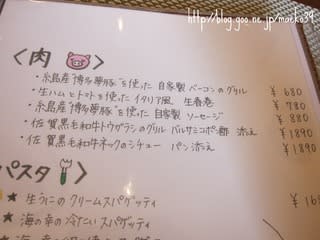 http://blog.goo.ne.jp/maeko39
〈肉 〉
・糸島産"博多夢豚"を使った 自家製 ベーコンのグリル ¥680
・生ハムとトマトを使った イタリア風 生春巻 ¥780
・糸島産"博多夢豚"を使った 自家製 ソーセージ ¥880
・佐賀黒毛和牛トウガラシのグリル バルサミコ 添え ¥1890
・佐賀黒毛和牛ネックのシチュー パン添え ¥1890
パスタ 〉
★ 生うにの クリームスパゲッティ ¥16
★ 海の幸の冷たい スパゲッティ
★ 海の幸